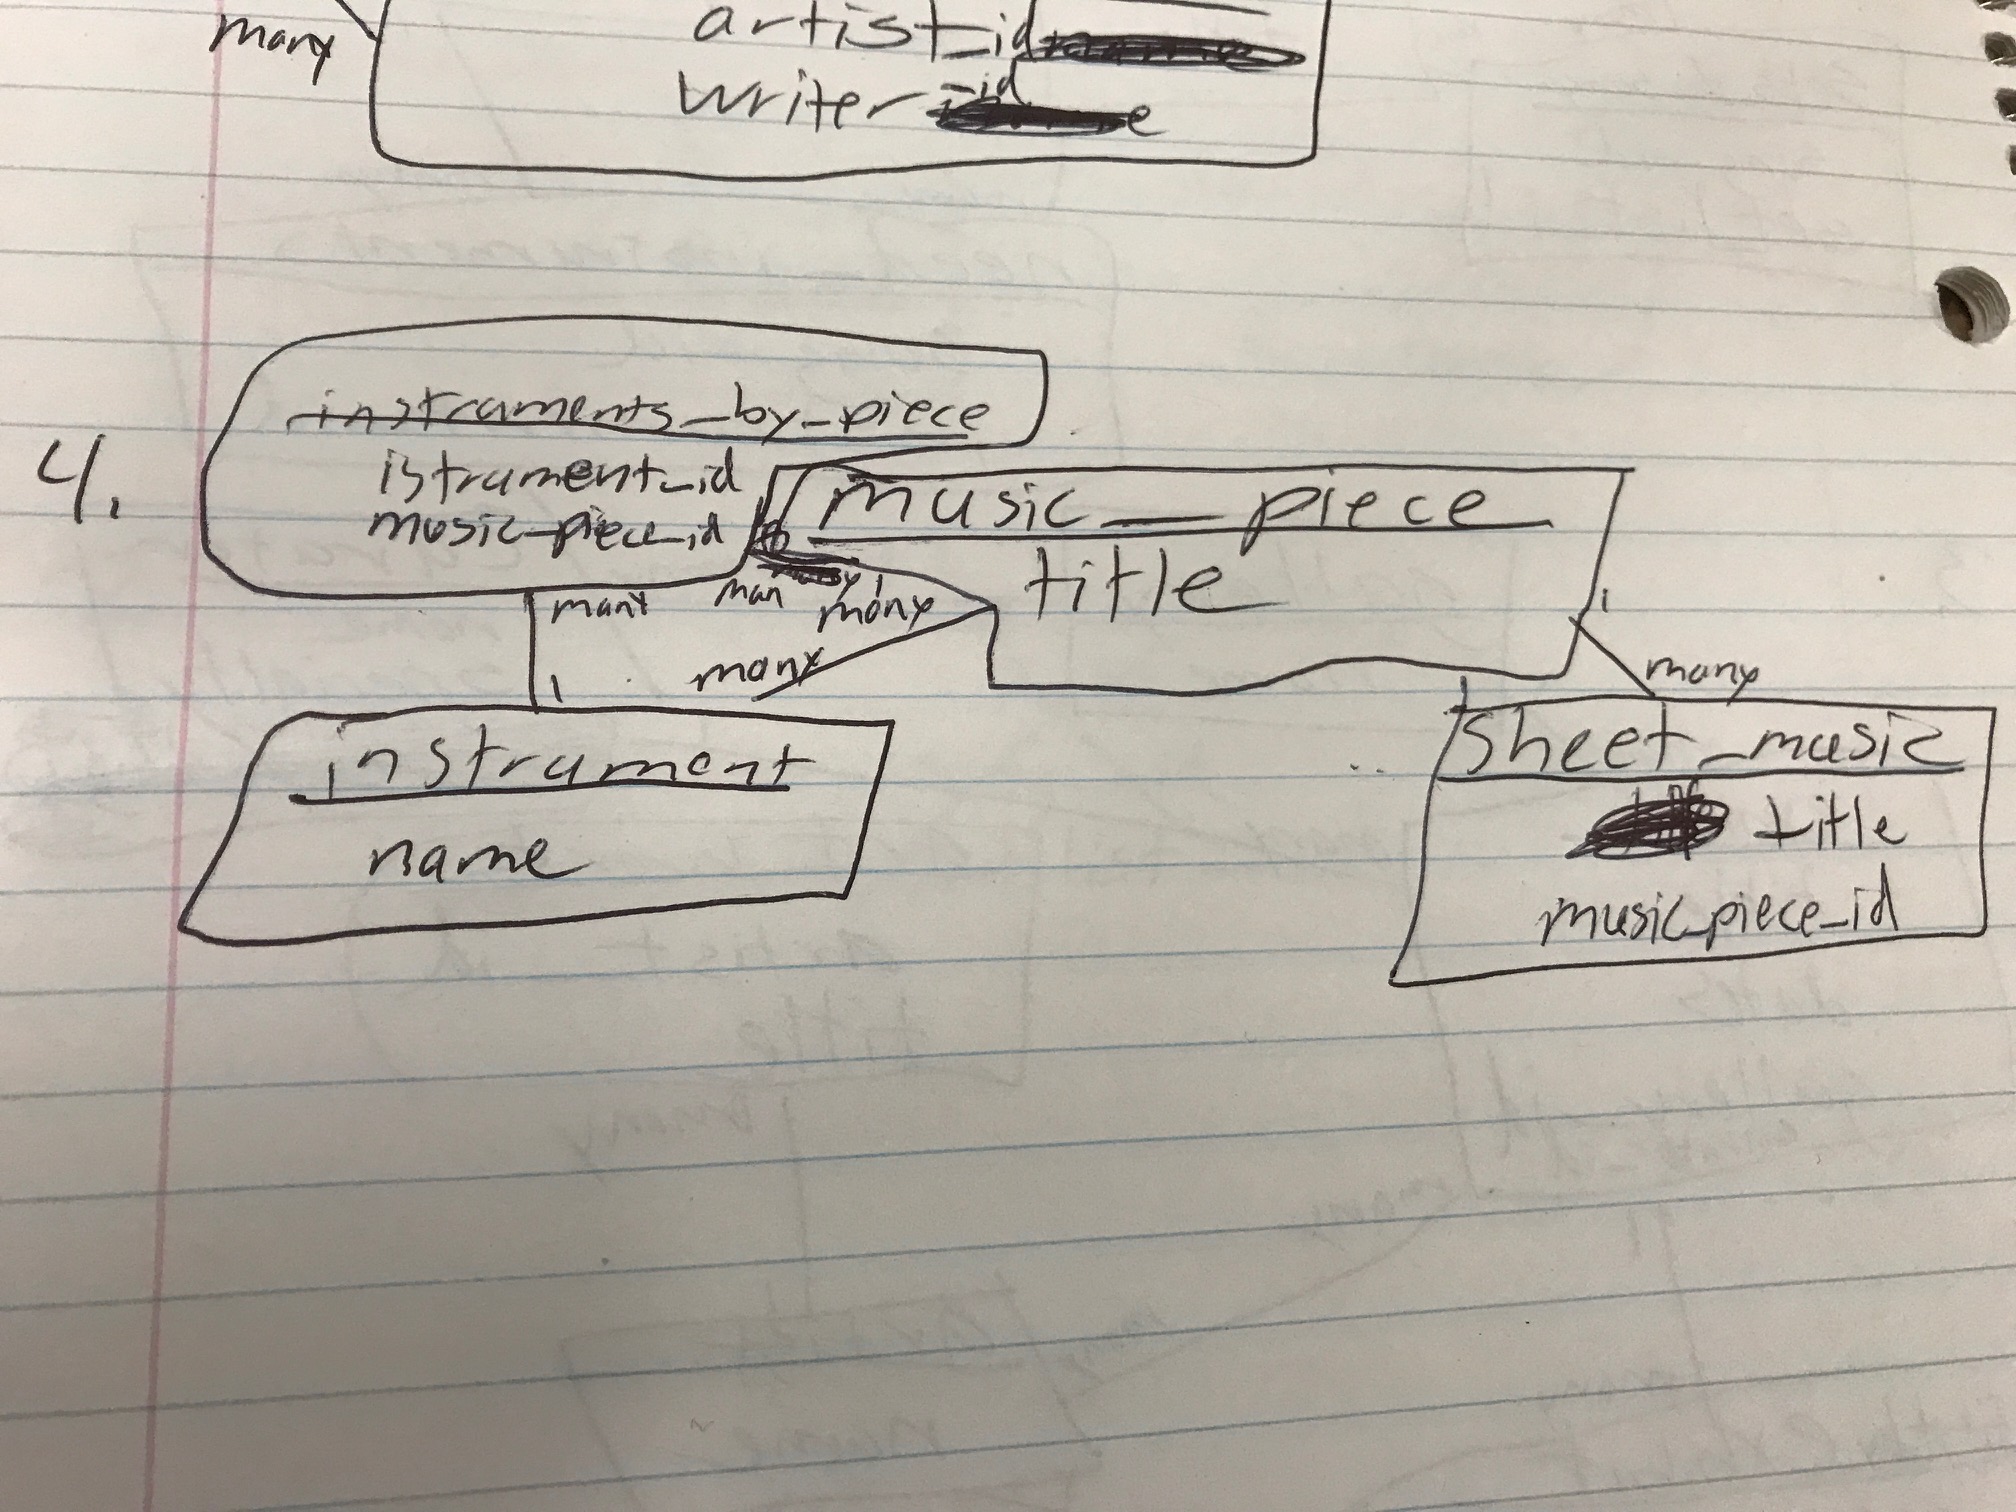 many
artist_id
writer_id
4.
instruments_by_piece
istrument_id
music_piece_id
music_piece
title
many
man
many
1
1
many
1
many
instrument
name
sheet_music
title
music_piece_id